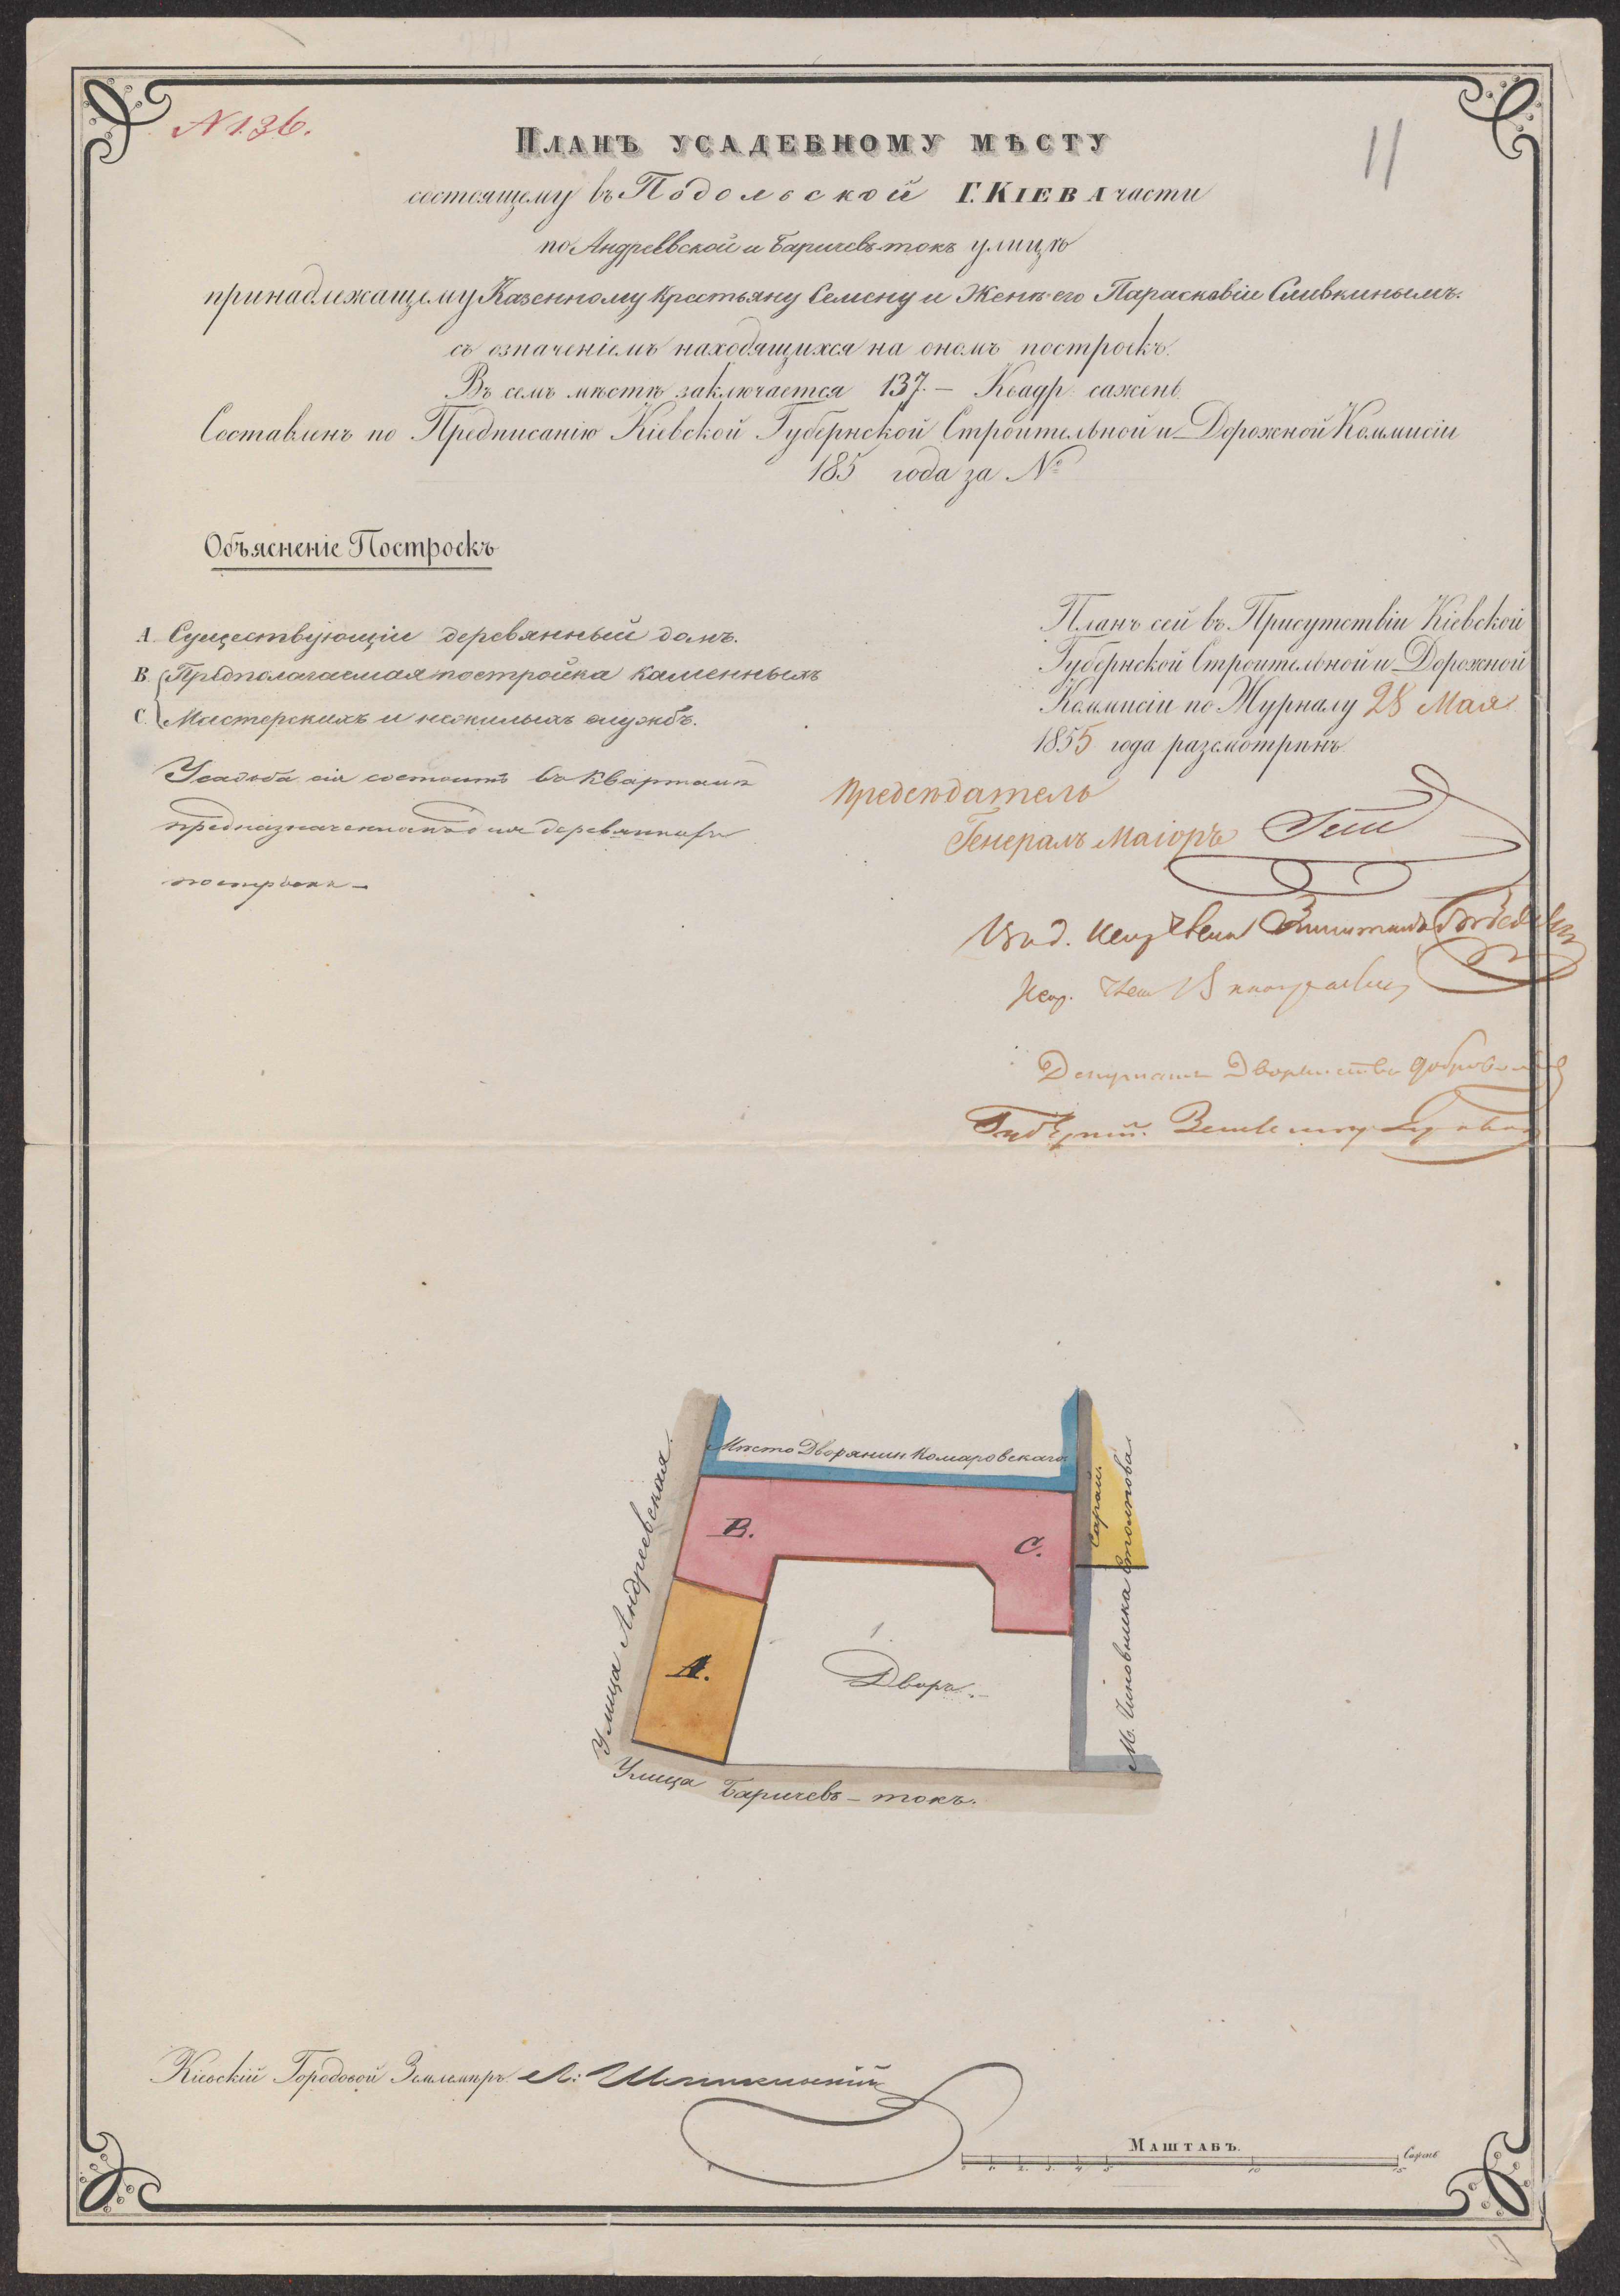 N 136.
11
Планъ усадебному мѣсту
состоящему въ Подольской Г. Кіева части
по Андреевской и Баричевъ-токъ улицѣ
принадлежащему Казенному Крестьяну Семену и Женѣ его Параскевіи Сливкинымъ.
съ означеніемъ находящихся на ономъ построекъ.
Въ семъ мѣстѣ заключается 137.- Квадр: сажень.
Составленъ по Предписанію Кіевской Губернской Строительной и Дорожной Коммисіи
185 года за №
Объясненіе Построекъ
А. Существующіи деревянный домъ.
В. Предполагаемая постройка каменныхъ
С. Мастерскихъ и нежилыхъ службъ.
Усадьба сія состоитъ въ Кварталѣ
предназначенномъ для деревянной
постройки -
Планъ сей въ Присутствіи Кіевской
Губернской Строительной и Дорожной
Коммисіи по Журналу 28 Мая
1855 года разсмотрѣнъ
Предсѣдатель
Генералъ Маіоръ
Депутатъ Дворянства
Мѣсто Дворянин Комаровскаго
Улица Андреевская.
В.
С.
Сарай.
М. Чиновника Столпова.
А.
1.
Дворъ.-
Улица Баричевъ-токъ.
Кіевскій Городовой Землемѣръ Л:
Маштабъ.
1. 2. 3. 4 5 10 15 Сажень